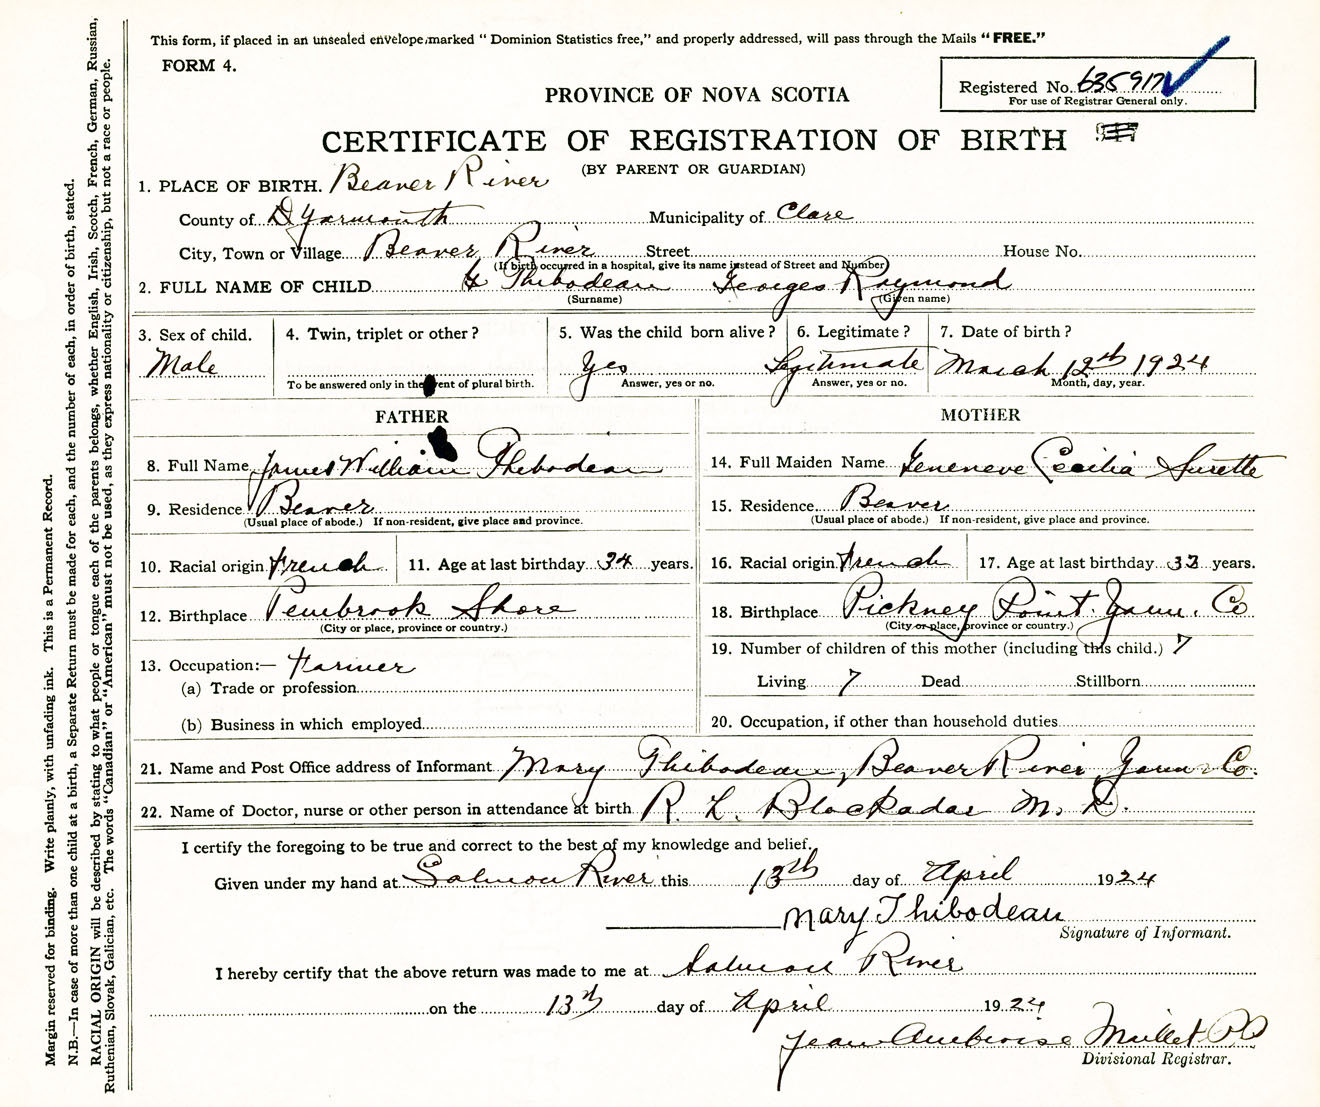 This form, if placed in an unsealed envelope, marked "Dominion Statistics free," and properly addressed, will pass through the Mails "FREE."
FORM 4.
Registered No. 635917
For use of Registrar General only.
PROVINCE OF NOVA SCOTIA
CERTIFICATE OF REGISTRATION OF BIRTH
(BY PARENT OR GUARDIAN)
1. PLACE OF BIRTH. Beaver River
County of Yarmouth Municipality of Clare
City, Town or Village Beaver River Street House No.
(If birth occurred in a hospital, give its name instead of Street and Number)
2. FULL NAME OF CHILD Thibodeau Georges Raymond
(Surname) (Given name)
3. Sex of child. 4. Twin, triplet or other? 5. Was the child born alive? 6. Legitimate? 7. Date of birth?
Male Yes Legitimate March 12th 1924
To be answered only in the event of plural birth. Answer, yes or no. Answer, yes or no. Month, day, year.
FATHER MOTHER
8. Full Name James William Thibodeau 14. Full Maiden Name Geneneve Cecilia Surette
9. Residence Beaver 15. Residence Beaver
(Usual place of abode.) If non-resident, give place and province. (Usual place of abode.) If non-resident, give place and province.
10. Racial origin French 11. Age at last birthday 34 years. 16. Racial origin French 17. Age at last birthday 33 years.
12. Birthplace Pembrook Shore 18. Birthplace Pickney Point. Yarm. Co
(City or place, province or country.) (City or place, province or country.)
13. Occupation:— Farmer 19. Number of children of this mother (including this child.) 7
(a) Trade or profession Living 7 Dead Stillborn
(b) Business in which employed 20. Occupation, if other than household duties
21. Name and Post Office address of Informant Mary Thibodeau, Beaver River Yarm Co.
22. Name of Doctor, nurse or other person in attendance at birth R. L. Blackadar M. D.
I certify the foregoing to be true and correct to the best of my knowledge and belief.
Given under my hand at Salmon River this 13th day of April 1924
Mary Thibodeau
Signature of Informant.
I hereby certify that the above return was made to me at Salmon River
on the 13th day of April 1924
Jean Ambroise Maillet PP
Divisional Registrar.
Margin reserved for binding. Write plainly, with unfading ink. This is a Permanent Record.
N.B.—In case of more than one child at a birth, a Separate Return must be made for each, and the number of each, in order of birth, stated.
RACIAL ORIGIN will be described by stating to what people or tongue each of the parents belongs, whether English, Irish, Scotch, French, German, Russian,
Ruthenian, Slovak, Galician, etc. The words "Canadian" or "American" must not be used, as they express nationality or citizenship, but not a race or people.